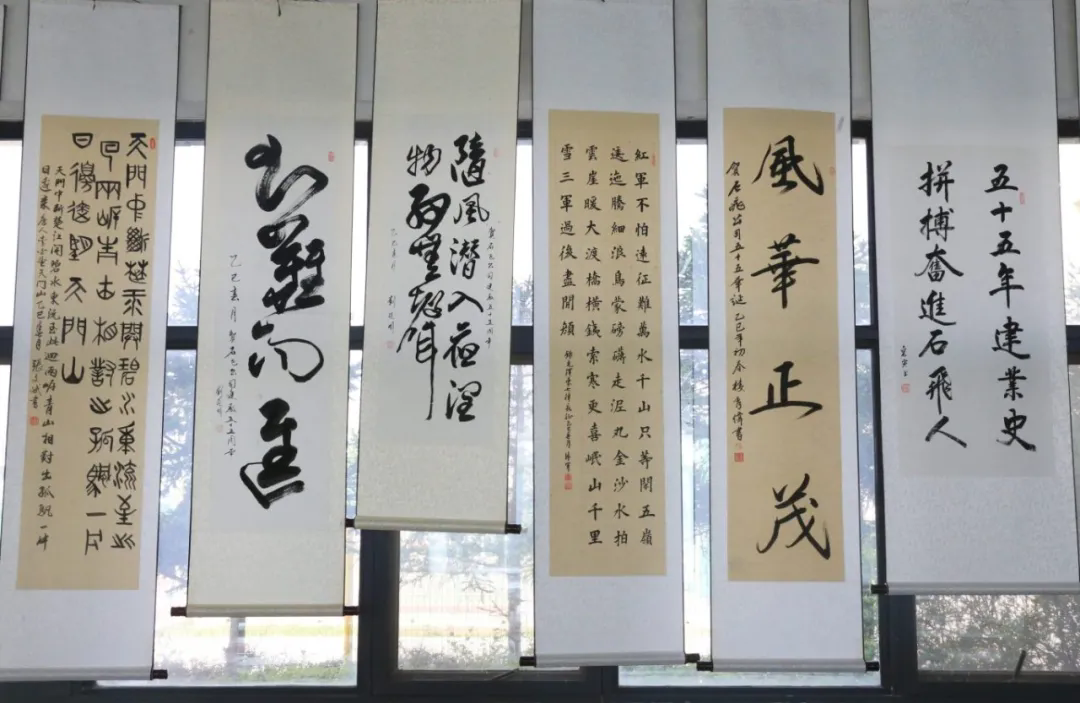 五十五年建業史
拼搏奮進石飛人
風華正茂
賀石飛公司五十五華誕 乙巳年初冬
紅軍不怕遠征難萬水千山只等閑五嶺
逶迤騰細浪烏蒙磅礴走泥丸金沙水拍
雲崖暖大渡橋橫鐵索寒更喜岷山千里
雪三軍過後盡開顏
隨風潜入夜潤
物細無聲
知難而進
天門中斷楚江開碧水東流至此
回兩岸青山相對出孤帆一片
日邊來望天門山
天門中斷楚江開碧水東流至此迴兩岸青山相對出孤帆一片
日邊來唐人李白望天門山乙巳